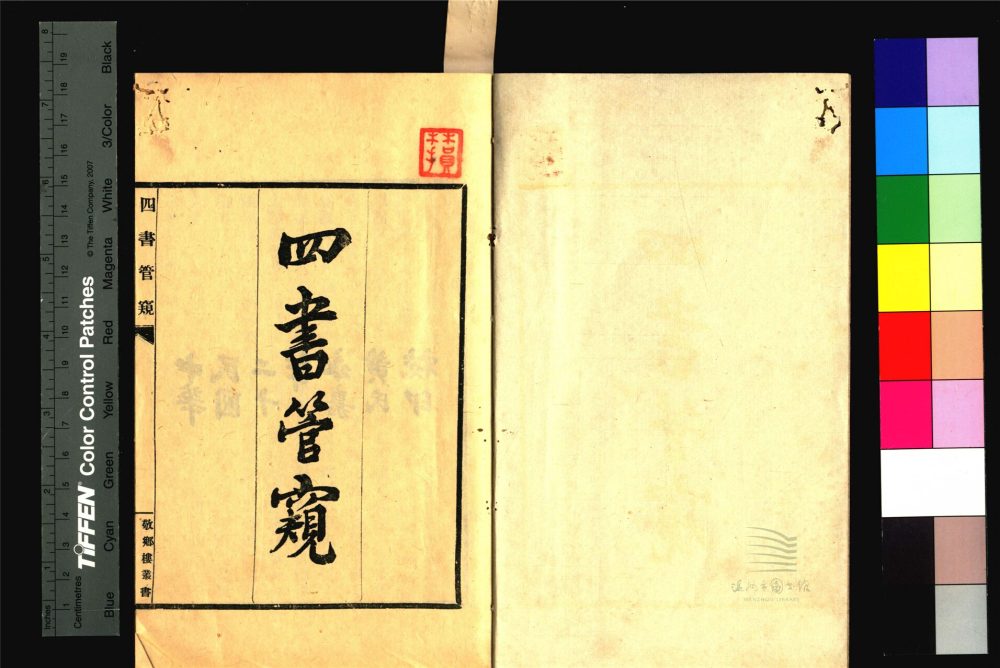 四書管窺
四書管窺
敬鄉樓叢書
温州市图书馆
WENZHOU LIBRARY
Inches
8
7
6
5
4
3
2
1
Centimetres
19
18
17
16
15
14
13
12
11
10
9
8
7
6
5
4
3
2
1
TIFFEN® Color Control Patches
© The Tiffen Company, 2007
Blue Cyan Green Yellow Red Magenta White 3/Color Black